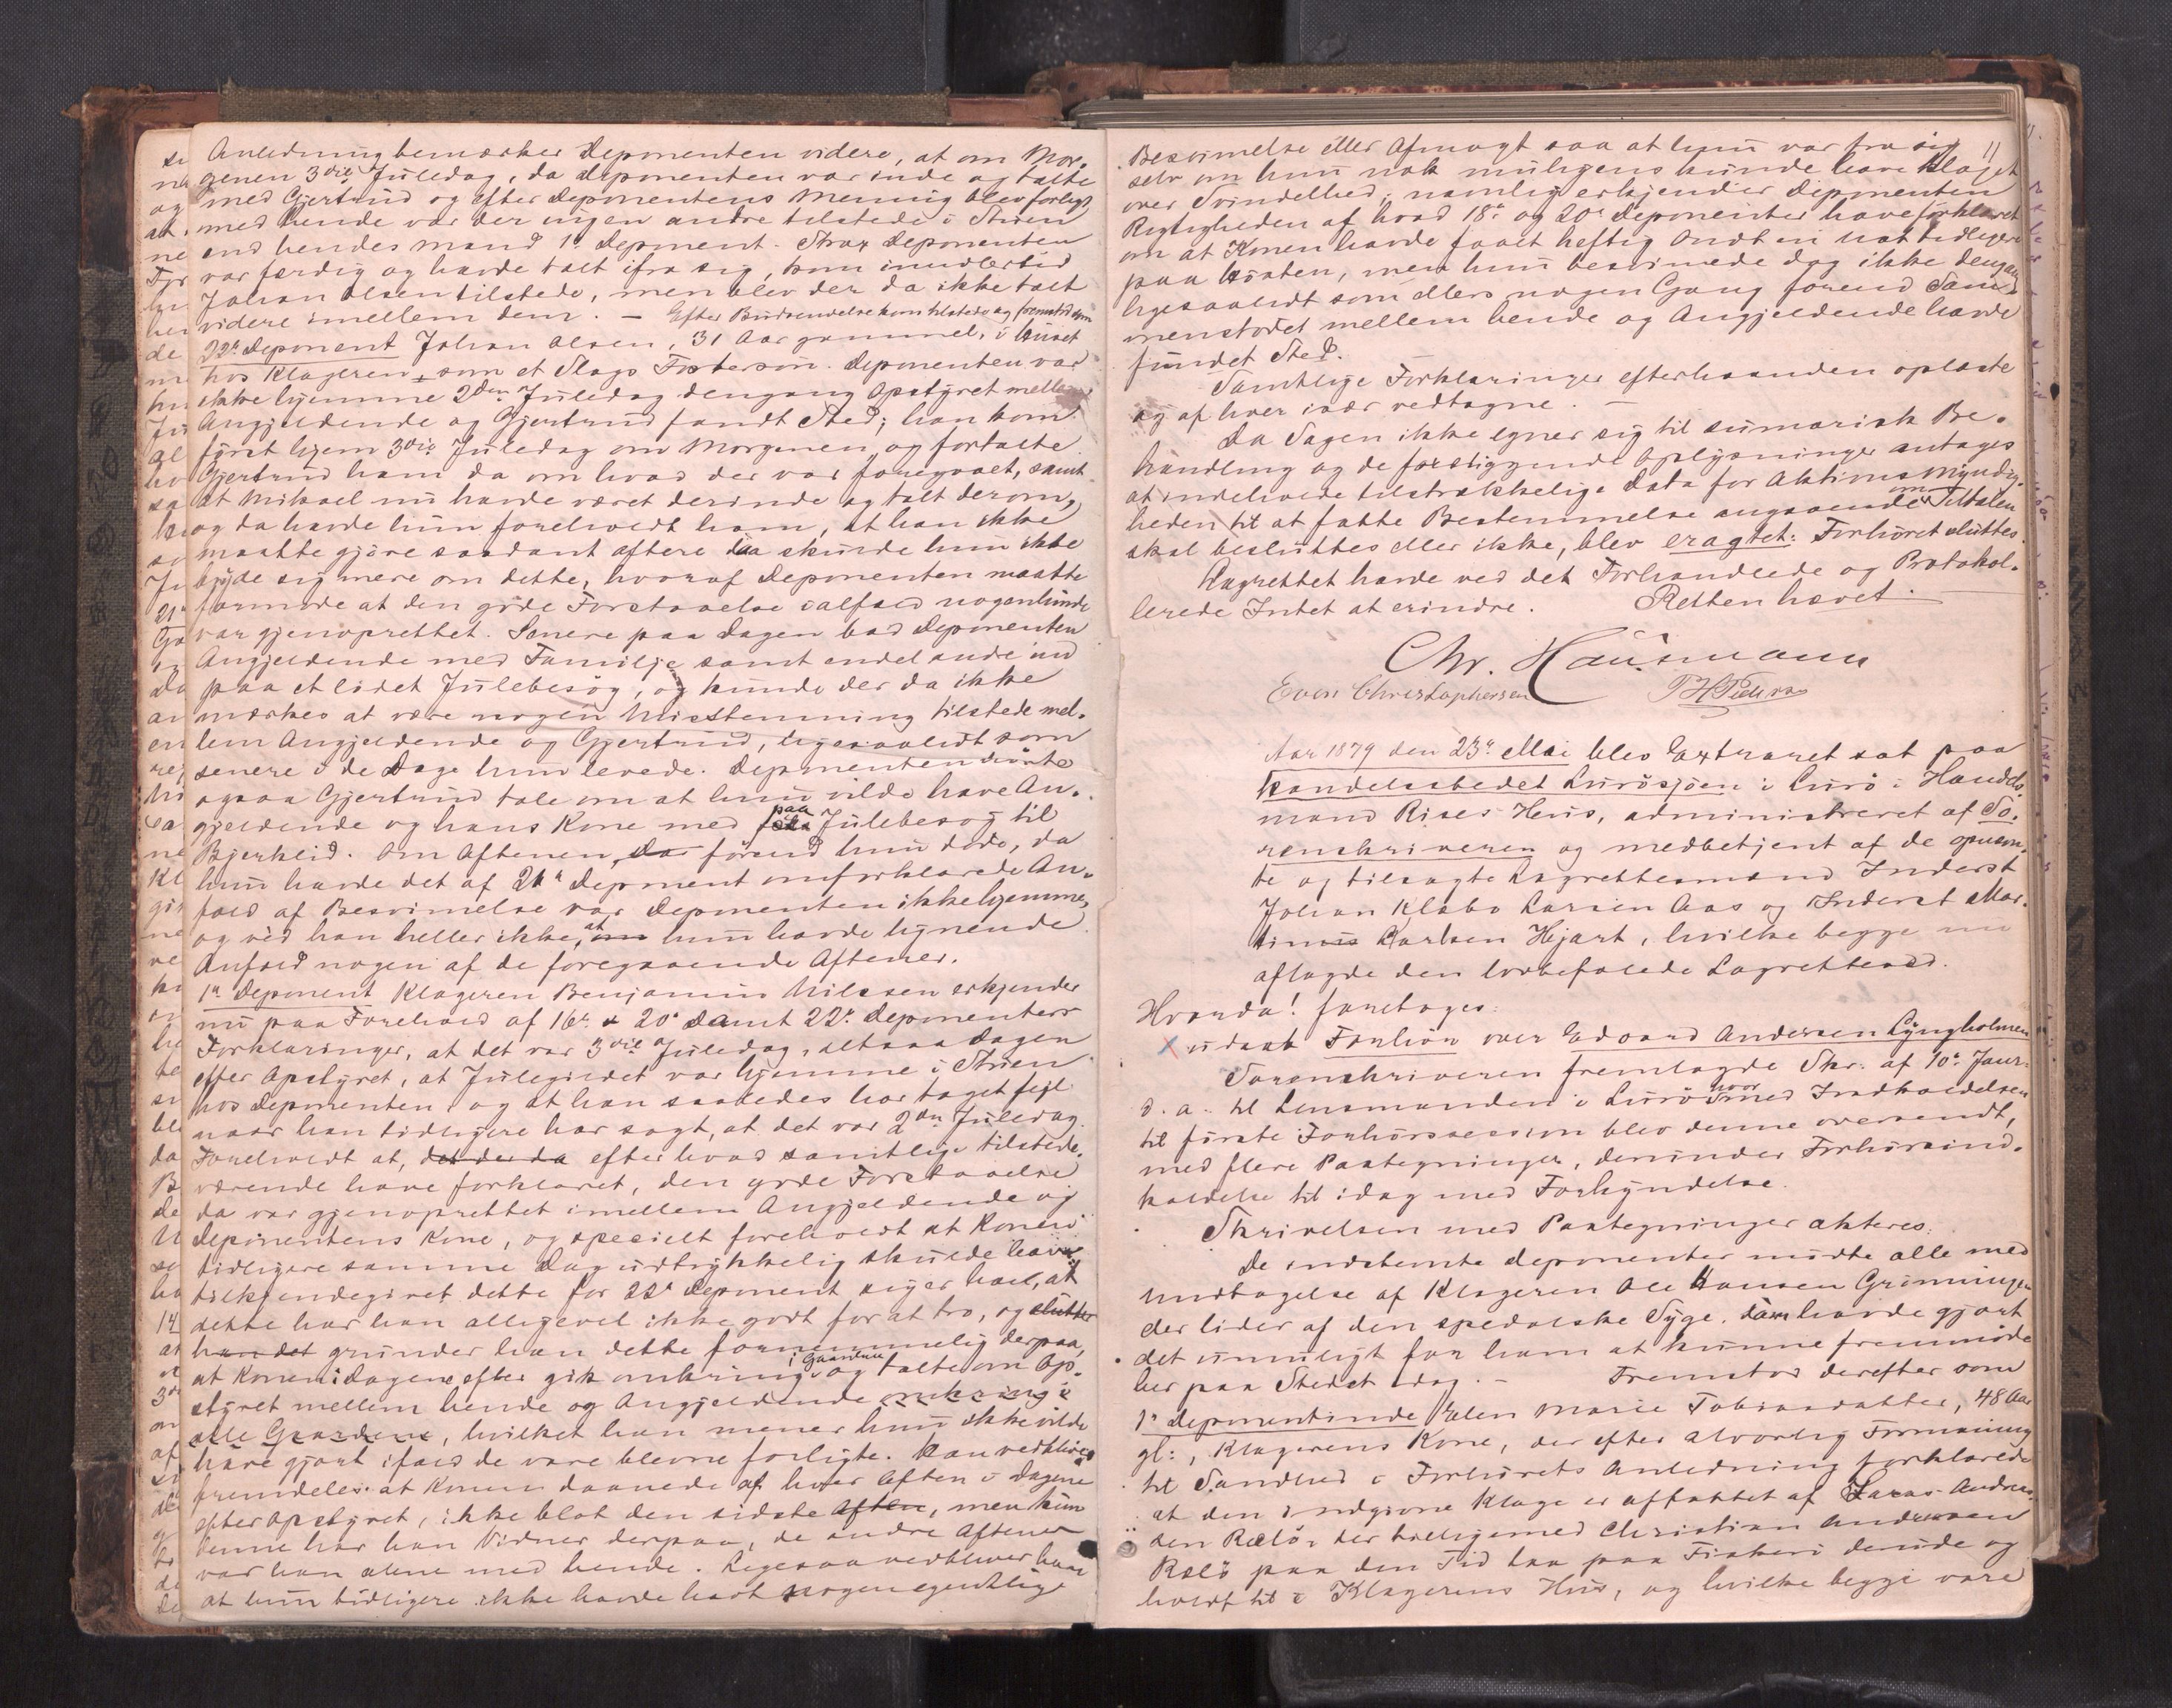 Anledning bemærker Deponenten videre, at om Mor-
genen 3die Juledag, da Deponenten var inde og talte
med Gjertrud og efter Deponentens Mening blev forligt
med hende var der ingen andre tilstede i Stuen
end hendes Mand 1e Deponent. Strax Deponenten
var færdig og havde talt ifra sig, kom imidlertid
Johan Olsen tilstede, men blev der da ikke talt
videre imellem dem. — Efter Budsendelse kom tilstede og fremstod som
22e Deponent Johan Olsen, 31 Aar gammel, i Huset
hos Klageren som et Slags Fostersøn. Deponenten var
ikke hjemme 2den Juledag dengang Opstyret mellem
Angjeldende og Gjertrud fandt Sted; han kom
først hjem 3die Juledag om Morgenen og fortalte
Gjertrud ham da om hvad der var foregaaet, samt
at Mikael nu havde været derinde og talt derom,
og da havde hun foreholdt ham, at han ikke
maatte gjøre saadant oftere saa skulde hun ikke
bryde sig mere om dette, hvoraf Deponenten maatte
formode at den gode Forstaaelse ialfald nogenlunde
var gjenoprettet. Senere paa Dagen bad Deponenten
Angjeldende med Familje samt endel andre ind
paa et lidet Julebesøg, og kunde der da ikke
mærkes at være nogen Misstemning tilstede mel-
lem Angjeldende og Gjertrud, ligesaalidt som
senere i de Dage hun levede. Deponenten hørte
ogsaa Gjertrud tale om at hun vilde have An-
gjeldende og hans Kone med paa Julebesøg til
Bjerklid. Om Aftenen, da førend hun døde, da
hun havde det af 21e Deponent omforklarede An-
fald af Besvimelse var Deponenten ikke hjemme,
og ved han heller ikke, at om hun havde lignende
Anfald nogen af de foregaaende Aftener.
1e Deponent Klageren Benjamin Nilssen erkjender
nu paa Forehold af 16e & 20e samt 22e Deponenters
Forklaringer, at det var 3die Juledag, altsaa Dagen
efter Opstyret, at Julegildet var hjemme i Stuen
hos Deponenten, og at han saaledes har taget fejl
naar han tidligere har sagt, at det var 2den Juledag.
Foreholdt at, det der da efter hvad samtlige tilstede-
værende have forklaret, den gode Forstaaelse
da var gjenoprettet imellem Angjeldende og
Deponentens Kone, og specielt foreholdt at Konen
tidligere samme Dag udtrykkelig skulde have
tilkjendegivet dette for 22e Deponent siger han, at
dette har han alligevel ikke godt for at tro, og slutter
han det grunder han dette fornemmelig derpaa,
at Konen i Dagene efter gik omkring i Gaardene og talte om Op-
styret mellem hende og Angjeldende omkring i
alle Gaardene, hvilket han mener hun ikke vilde
have gjort ifald de vare blevne forligte. Han vedbliver
fremdeles at Konen daanede af hver Aften i Dagene
efter Opstyret, ikke blot den sidste Aften, men kun
denne har han Vidner derpaa, de andre Aftener
var han alene med hende. Ligesaa vedbliver han
at hun tidligere ikke havde havt nogen egentlige
11
Besvimelse eller Afmagt saa at hun var fra sig
selv om hun nok muligens kunde have klaget
over Svindelhed; namlig erkjender Deponenten
Rigtigheden af hvad 18e og 20e Deponenter have forklaret
om at Konen havde faaet heftig Ondt en Nat tidligere
paa Høsten, men hun besvimede dog ikke dengang
ligesaalidt som ellers nogen Gang førend Sam-
menstødet mellem hende og Angjeldende havde
fundet Sted.
Samtlige Forklaringer efterhaanden oplæste
og af hver især vedtagne. —
Da Sagen ikke egner sig til sumarisk Be-
handling og de foreliggende Oplysninger antages
at indeholde tilstrækkelige Data for Aktionsmyndig-
heden til at fatte Bestemmelse angaaende om Tiltalen
skal besluttes eller ikke, blev eragtet: Forhøret sluttes.
Lagrettet havde ved det Forhandlede og Protokol-
lerede Intet at erindre. Retten hævet.
Chr. Hausmann
Even Christophersen
Aar 1879 den 23e Mai blev Extraret sat paa
Handelsstedet Lurøsjøen i Lurø i Handels-
mand Rises Hus, administreret af So-
renskriveren og medbetjent af de opnævn-
te og tilsagte Lagrettesmænd Inderst
Johan Klæbo Larsen Aas og Inderst Mar-
tinus Karlsen Hjart, hvilke begge nu
aflagde den lovbefalede Lagrettesed.
Hvorda! foretoges:
x udsat Forhør over Edvard Andersen Lyngholmen
Sorenskriveren fremlagde Skr. af 10e Janr.
d. a. til Lensmanden i Lurø hvormed Indkaldelsen
til første Forhørssession blev denne oversendt,
med flere Paategninger, derunder Forhørsind-
kaldelse til idag med Forkyndelse.
Skrivelsen med Paategninger akteres.
De indstevnte Deponenter mødte alle med
Undtagelse af Klageren Ole Hansen Grønningen
der lider af den spedalske Syge, som havde gjort
det umuligt for ham at kunne fremmøde
her paa Stedet idag. — Fremstod derefter som
1e Deponentinde Elen Marie Tobiasdatter, 48 Aar
gl:, Klagerens Kone, der efter alvorlig Formaning
til Sandhed i Forhørets Anledning forklarede
at den indgivne Klage er affattet af Andrea-
sen Rælø, der tilligemed Christian Andreasen
Rælø paa den Tid laa paa Fiskeri derude og
holdt til i Klagerens Hus, og hvilke begge vare